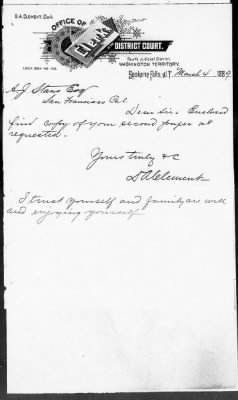 D.A. CLEMENT, Clerk.
OFFICE OF
Clerk
DISTRICT COURT.
Fourth Judicial District.
WASHINGTON TERRITORY.
LOCK BOX
Spokane Falls, W.T. March 4 1889
A J
San Francisco Cal.
Dear sir. Enclosed
find copy of your second paper as
requested.
Yours truly &c
DAClement
I trust yourself and family are well
and enjoying yourself